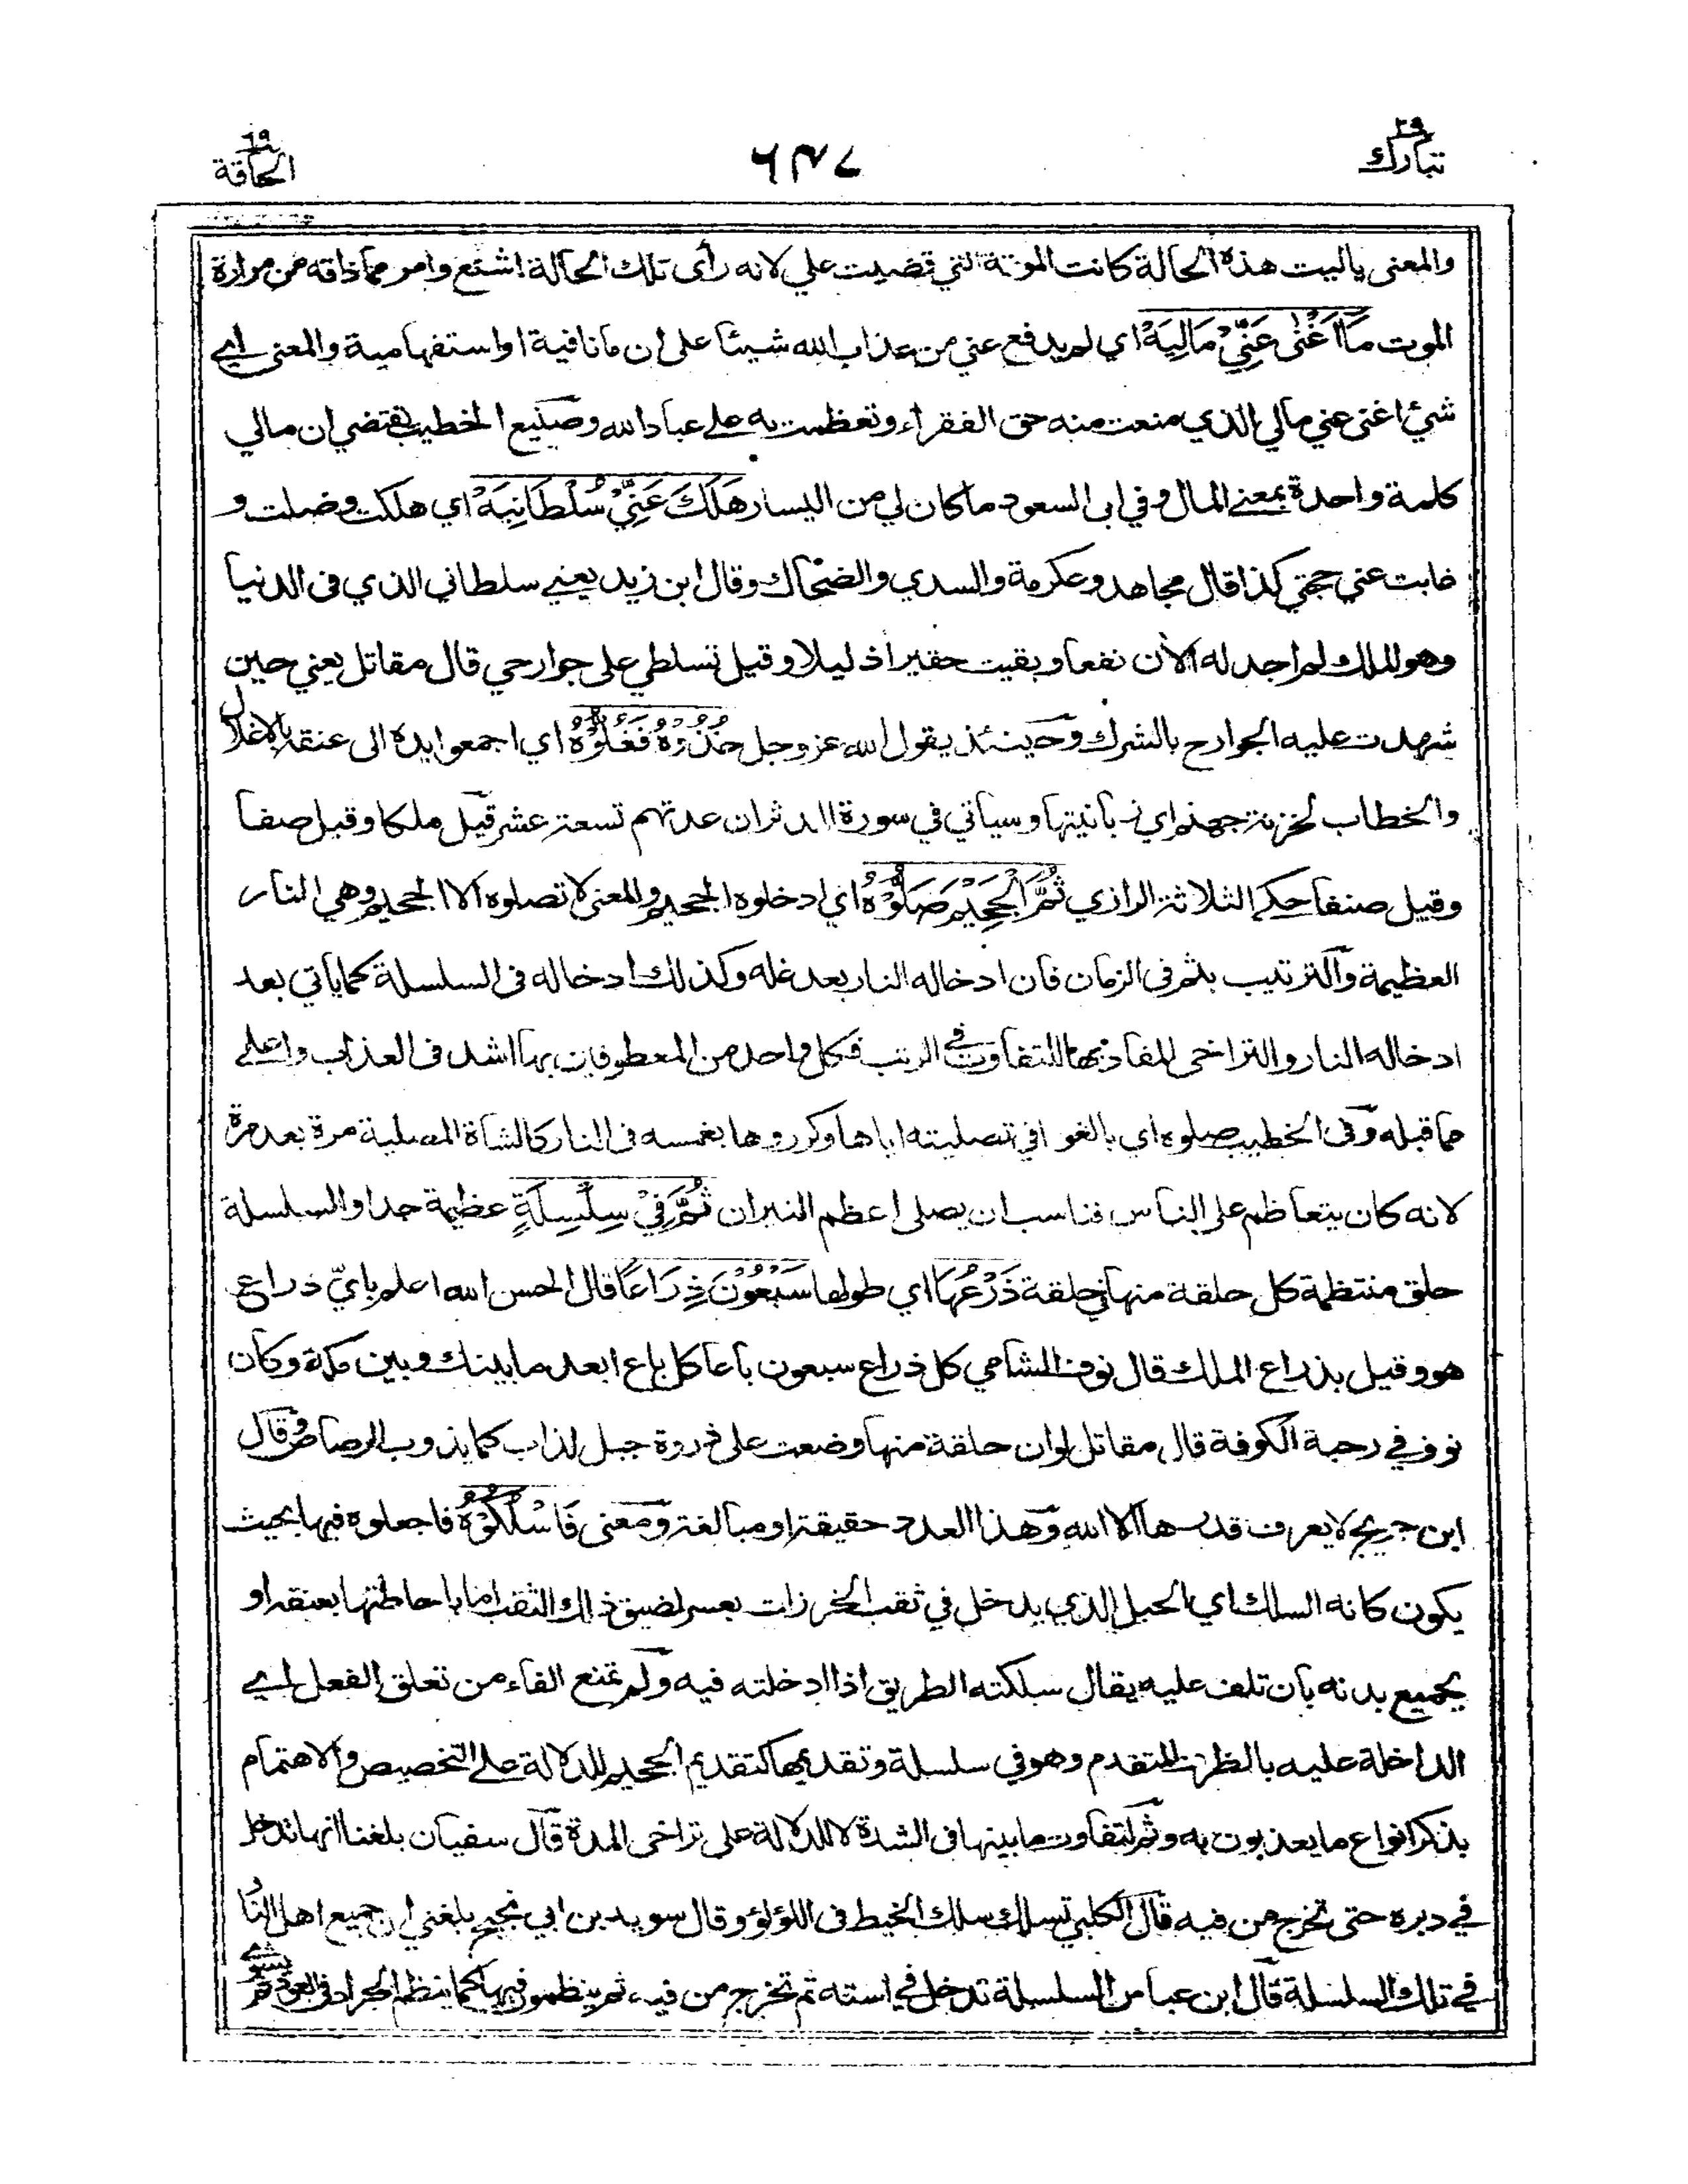 تبارك ٢٩
٦٣٨
الحاقة ٦٩
والمعنى ياليت هذه الحالة كانت الموتة التي قضيت علي لانه رأى تلك الحالة اشنع وامر مما ذاقه من مرارة
الموت مَا اَغْنٰى عَنِّيْ مَالِيَهْ اي لم يدفع عني من عذاب الله شيئا على ان ما نافية او استفهامية والمعنى اي
شئ اغنى عني مالي الذي منعت منه حق الفقراء وتعظمت به على عباد الله وصنيع الخطيب يقتضي ان مالي
كلمة واحدة بمعنى المال وفي ابي السعود ما كان لي من اليسار هَلَكَ عَنِّيْ سُلْطَانِيَهْ اي هلكت وضلت و
غابت عني حجتي كذا قال مجاهد وعكرمة والسدي والضحاك وقال ابن زيد يعني سلطاني الذي في الدنيا
وهو الملك لم اجد له الآن نفعا وبقيت حقيرا ذليلا وقيل تسلطي على جوارحي قال مقاتل يعني حين
شهدت عليه الجوارح بالشرك وحينئذ يقول الله عز وجل خُذُوْهُ فَغُلُّوْهُ اي اجمعوا يده الى عنقه بالاغلال
والخطاب لخزنة جهنم اي زبانيتها وسيأتي في سورة المدثر ان عدتهم تسعة عشر قيل ملكا وقيل صفا
وقيل صنفا حكى الثلاثة الرازي ثُمَّ الْجَحِيْمَ صَلُّوْهُ اي ادخلوه الجحيم والمعنى لا تصلوه الا الجحيم وهي النار
العظيمة والترتيب بثم في الزمان فان ادخاله النار بعد غله وكذلك ادخاله في السلسلة كما يأتي بعد
ادخاله النار والتراخي المفاد بها للتفاوت في الرتب فكل واحد من المعطوفين بها اشد في العذاب واعلى
مما قبله وفي الخطيب صلوه اي بالغوا في تصليته اياها وكرروها بغمسه في النار كالشاة المصلية مرة بعد مرة
لانه كان يتعاظم على الناس فناسب ان يصلى اعظم النيران ثُمَّ فِيْ سِلْسِلَةٍ عظيمة جدا والسلسلة
حلق منتظمة كل حلقة منها في حلقة ذَرْعُهَا اي طولها سَبْعُوْنَ ذِرَاعًا قال الحسن الله اعلم باي ذراع
هو وقيل بذراع الملك قال نوف الشامي كل ذراع سبعون باعا كل باع ابعد ما بينك وبين مكة وكان
نوف في رحبة الكوفة قال مقاتل لو ان حلقة منها وضعت على ذروة جبل لذاب كما يذوب الرصاص وقال
ابن جريج لا يعرف قدرها الا الله وهذا العدد حقيقة او مبالغة ومعنى فَاسْلُكُوْهُ فاجعلوه فيها بحيث
يكون كانه السلك اي الحبل الذي يدخل في ثقب الخرزات بعسر لضيق ذلك الثقب اما باحاطتها بعنقه او
بجميع بدنه بان تلف عليه يقال سلكته الطريق اذا ادخلته فيه ولم تمنع الفاء من تعلق الفعل اي
الداخلة عليه بالظرف المتقدم وهو في سلسلة وتقديمها كتقديم الجحيم للدلالة على التخصيص والاهتمام
بذكر انواع ما يعذبون به وثم لتفاوت ما بينها في الشدة لا للدلالة على تراخي المدة قال سفيان بلغنا انها تدخل
في دبره حتى تخرج من فيه قال الكلبي تسلك سلك الخيط في اللؤلؤ وقال سويد بن ابي نجيح بلغني ان جميع اهل النار
في تلك السلسلة قال ابن عباس السلسلة تدخل في استه ثم تخرج من فيه ثم ينظمون فيها كما ينظم الجراد في العود ثم يشوى